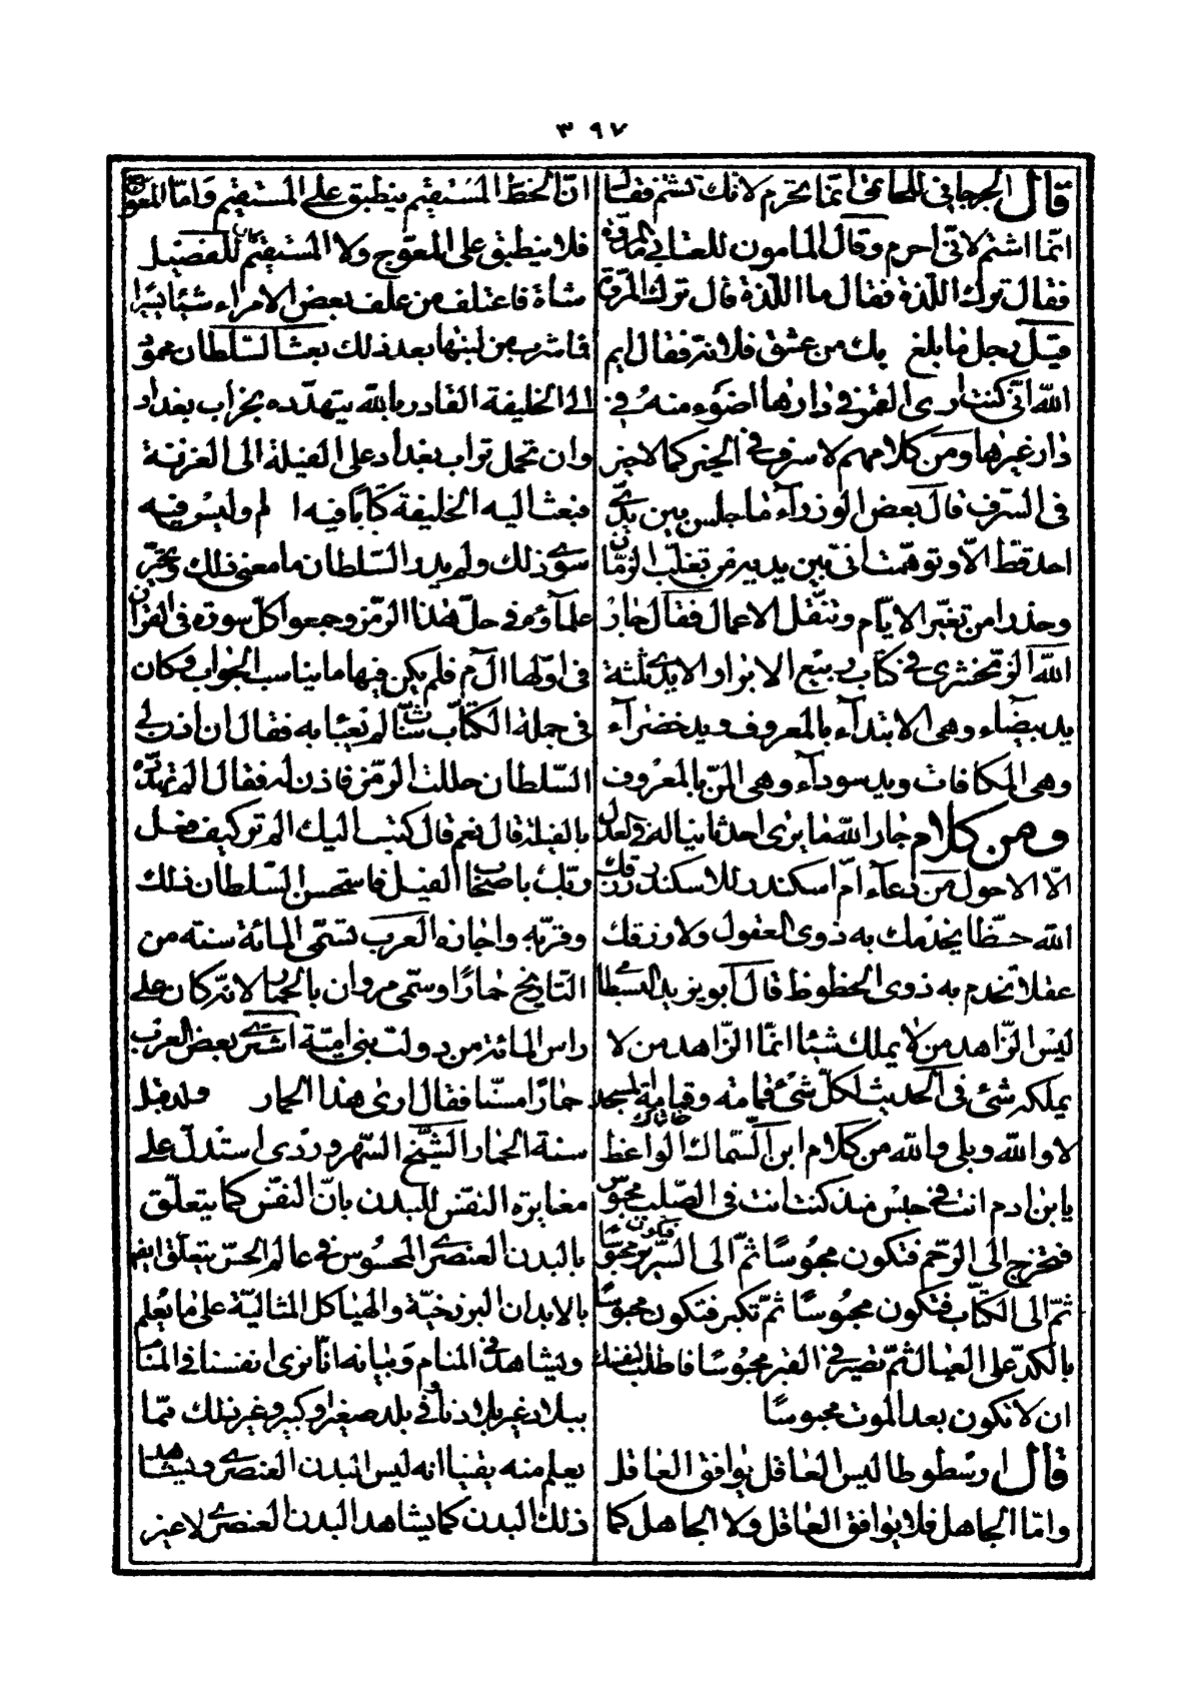 ٣٩٧
قال الجرجاني للحامى انما يحترم لانك تشتم فقال
انما اشتم لانى احرم وقال المامون للعتابي ما المروة
فقال ترك اللذة فقال ما اللذة قال ترك المروة
قيل رجل ما بلغ بك من عشق فلانة فقال ايم
الله انى كنت ارى القمر فى دارها اضوء منه فى
دار غيرها ومن كلامهم لا سرف فى الخير كما لا خير
فى السرف قال بعض الوزراء ما جلس بين يدى
احد قط الا وتوهمت انى بين يديه من تغلب الزمان
وحذرا من تغير الايام وتنقل الاعمال فقال جار
الله الزمخشرى فى كتاب ربيع الابرار الايدى ثلثة
يد بيضاء وهى الابتداء بالمعروف ويد خضراء
وهى المكافات ويد سوداء وهى المن بالمعروف
ومن كلام جار الله ما يرى احد ثانيا له فى العدل
الا الاحول من دعاء ام اسكندر للاسكندر رزقك
الله حظا يخدمك به ذوى العقول ولا رزقك
عقلا تخدم به ذوى الحظوظ قال ابو يزيد البسطامى
ليس الزاهد من لا يملك شيئا انما الزاهد من لا
يملكه شئ فى الحديث لكل شئ قمامة وقمامة المسجد
لا والله وبلى والله من كلام ابن السماك الواعظ
يابن ادم انت فى حبس منذ كنت انت فى الصلب محبوس
فتخرج الى الرحم فتكون محبوسا ثم الى السرير فتكون محبوسا
ثم الى الكتاب فتكون محبوسا ثم تكبر فتكون محبوسا
بالكد على العيال ثم تصير فى القبر محبوسا فاطلب لنفسك
ان لا تكون بعد الموت محبوسا
قال ارسطوطاليس العاقل يوافق العاقل
واما الجاهل فلا يوافق العاقل ولا الجاهل كما
ان الخط المستقيم ينطبق على المستقيم واما المعوج
فلا ينطبق على المعوج ولا المستقيم كان للفضيل
شاة فاعتلف من علف بعض الامراء شيئا يسيرا
فما شرب من لبنها بعد ذلك بعث السلطان محمود
الى الخليفة القادر بالله يتهدده بخراب بغداد
وان تحمل تراب بغداد على الفيلة الى الغزنة
فبعث اليه الخليفة كتابا فيه ا لم وليس فيه
سوى ذلك ولم يدر السلطان ما معنى ذلك وتحير
علماؤه فى حل هذا الرمز وجمعوا كل سورة فى القران
فى اولها الم فلم يكن فيها ما يناسب الجواب وكان
فى جملة الكتاب شاب لم يعبا به فقال ان اذن لى
السلطان حللت الرمز فاذن له فقال الم تهدده
بالفيلة قال نعم قال كتب اليك الم تر كيف فعل
ربك باصحاب الفيل فاستحسن السلطان ذلك
وقربه واجازه العرب تسمى المائة سنة من
التاريخ حمارا وسمى مروان بالحمار لانه كان على
راس المائة من دولت بنى امية اشترى بعض العرب
حمارا مسنا فقال ارى هذا الحمار ولد قبل
سنة الحمار الشيخ السهروردى استدل على
مغايرة النفس للبدن بان النفس كما يتعلق
بالبدن العنصرى المحسوس فى عالم الحس يتعلق ايضا
بالابدان البرزخية والهياكل المثالية على ما يعلم
ويشاهد فى المنام وبيانه انا نرى انفسنا فى المنام
ببلاد غير بلادنا وفى بلد صغير او كبير وغير ذلك مما
يعلم منه يقينا انه ليس البدن العنصرى ويشاهد
ذلك البدن كما يشاهد البدن العنصرى لا غير